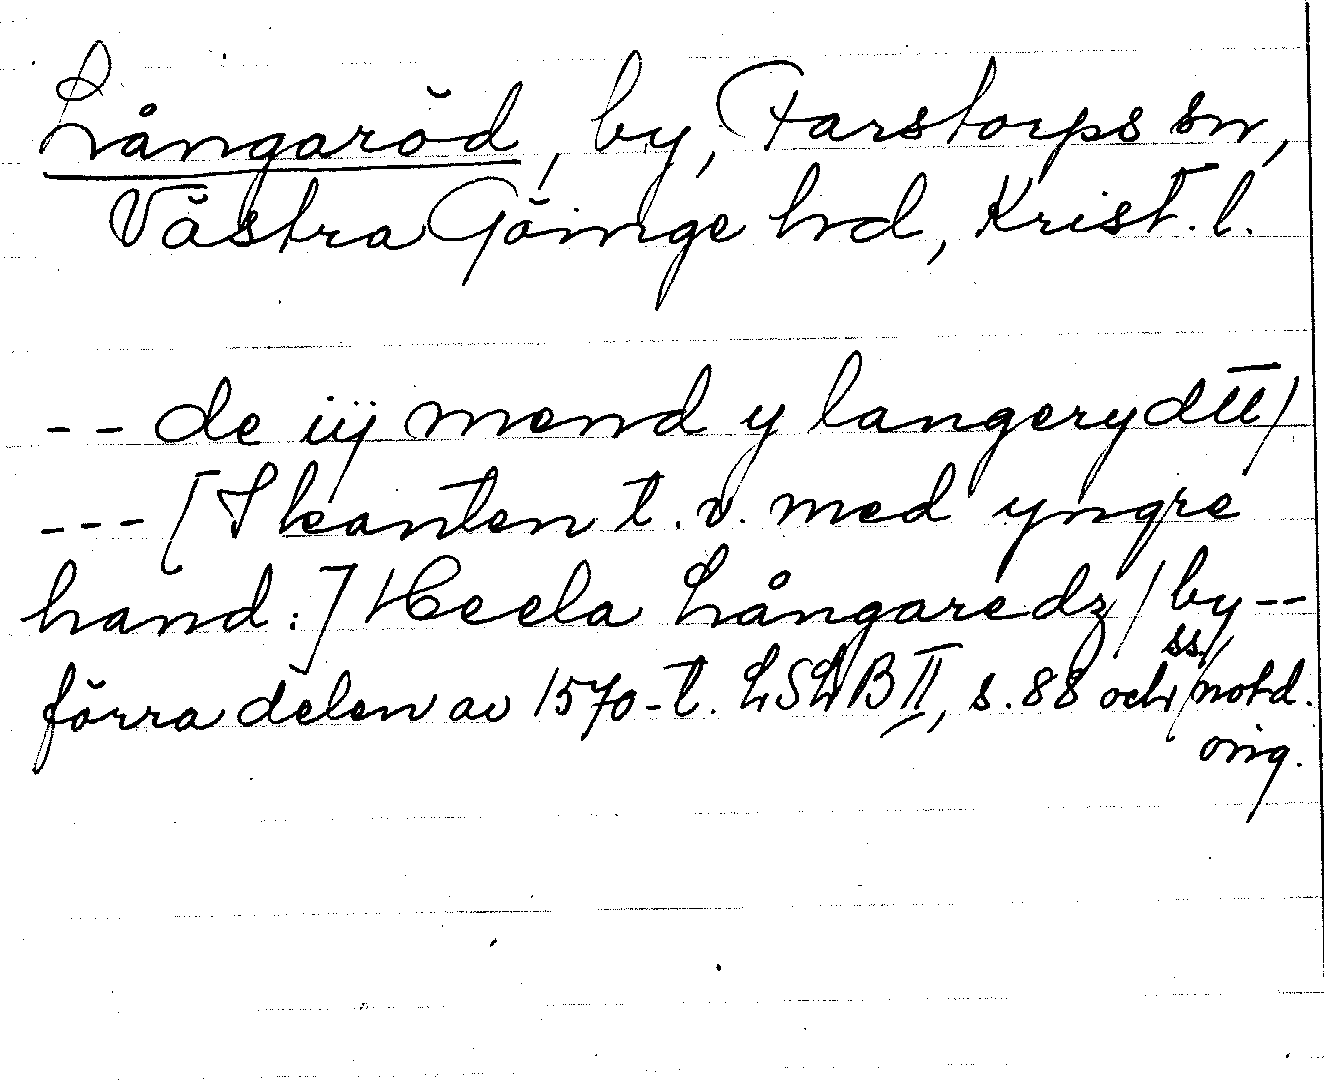 Långaröd, by, Farstorps sn,
Västra Göinge hd, Krist. l.
-- de iij mend y langerydtt/
--- [I kanten t.v. med yngre
hand:] Heela Långaredz/by--
förra delen av 1570-t. LSLB II, s. 88 och not d.
ss/orig.